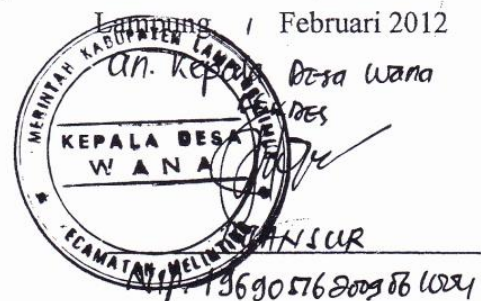 Lampung, 1 Februari 2012
an. Kepala Desa Wana
SEKDES
PEMERINTAH KABUPATEN LAMPUNG TIMUR
KEPALA DESA
WANA
KECAMATAN MELINTING
MANSUR
Nip.